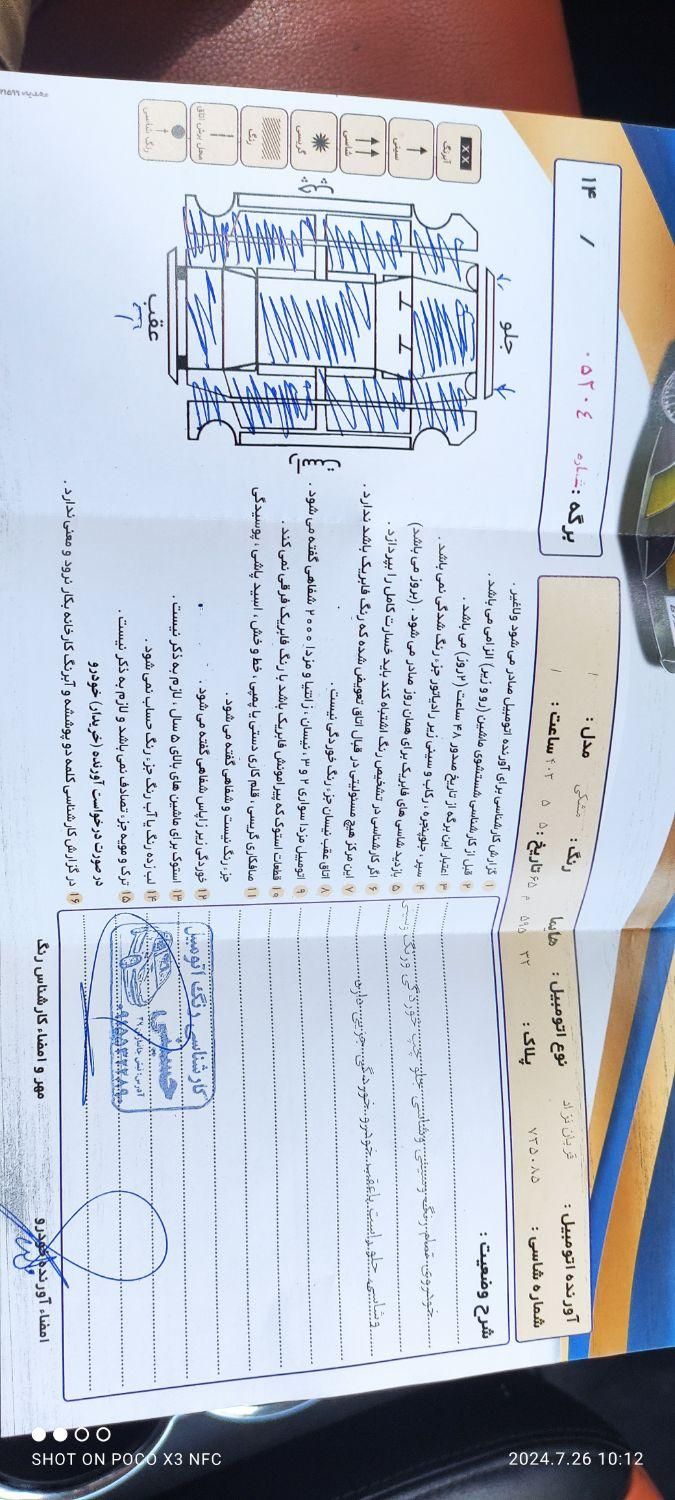 برگه : شماره ۰۵۲۰۴
۱۴ /
آورنده اتومبیل : قربان نژاد
نوع اتومبیل : سایپا
رنگ : مشکی
مدل :
شماره شاسی : ۷۳۵۰۸۵
پلاک : ۳۲ ۵۹۵ م ۶۵
تاریخ : ۵ ۵ ۴۰۳
ساعت :
جلو
عقب
راست
چپ
آبرنگ
سینی
شاسی
گریسی
رنگ
محل برش اتاق
رنگ شاسی
۱ گزارش کارشناسی برای آورنده اتومبیل صادر می شود ولاغیر .
۲ قبل از کارشناسی شستشوی ماشین (رو و زیر) الزامی می باشد .
۳ اعتبار این برگه از تاریخ صدور ۴۸ ساعت (۲روز) می باشد .
۴ سپر ، جلوپنجره ، رکاب و سینی زیر رادیاتور جزء رنگ شدگی نمی باشد .
۵ بازدید شاسی های فابریک برای همان روز صادر می شود . (بروز می باشد)
۶ اگر کارشناسی در تشخیص رنگ اشتباه کند باید خسارت کامل را بپردازد .
۷ این مرکز هیچ مسئولیتی در قبال اتاق تعویض شده که رنگ فابریک باشد ندارد .
۸ اتاق عقب نیسان جزء رنگ خوردگی نیست .
۹ اتومبیل مزدا سواری ۲ و ۳ ، نیسان ، زانتیا و مزدا ۲۰۰۰ شفاهی گفته می شود .
۱۰ قطعات استوک که پیرامونش فابریک باشد با رنگ فابریک فرقی نمی کند .
۱۱ صافکاری گریسی ، قلم کاری دستی یا پمپی ، خط و خش ، اسید پاشی ، پوسیدگی
جزء رنگ نیست و شفاهی گفته می شود .
۱۲ خوردگی زیر زاپاس شفاهی گفته می شود .
۱۳ استوک برای ماشین های بالای ۵ سال ، لازم به ذکر نیست .
۱۴ لب زده رنگ یا آب رنگ جزء رنگ حساب نمی شود .
۱۵ ترک و مویه جزء تصادف نمی باشد و لازم به ذکر نیست .
در صورت درخواست آورنده (خریدار) خودرو
۱۶ در گزارش کارشناسی کلمه دو پوششه و آبرنگ کارخانه بکار نرود و معنی ندارد .
شرح وضعیت :
خودروی تمام رنگ وسینی وشاسی جلو چپ خوردگی ورنگ وسینی
وشاسی جلو راست یا عقب خودرو خوردگی جزیی دارد
کارشناسی رنگ اتومبیل
حسینی
مهر و امضاء کارشناس رنگ
امضاء آورنده خودرو
SHOT ON POCO X3 NFC
2024.7.26 10:12